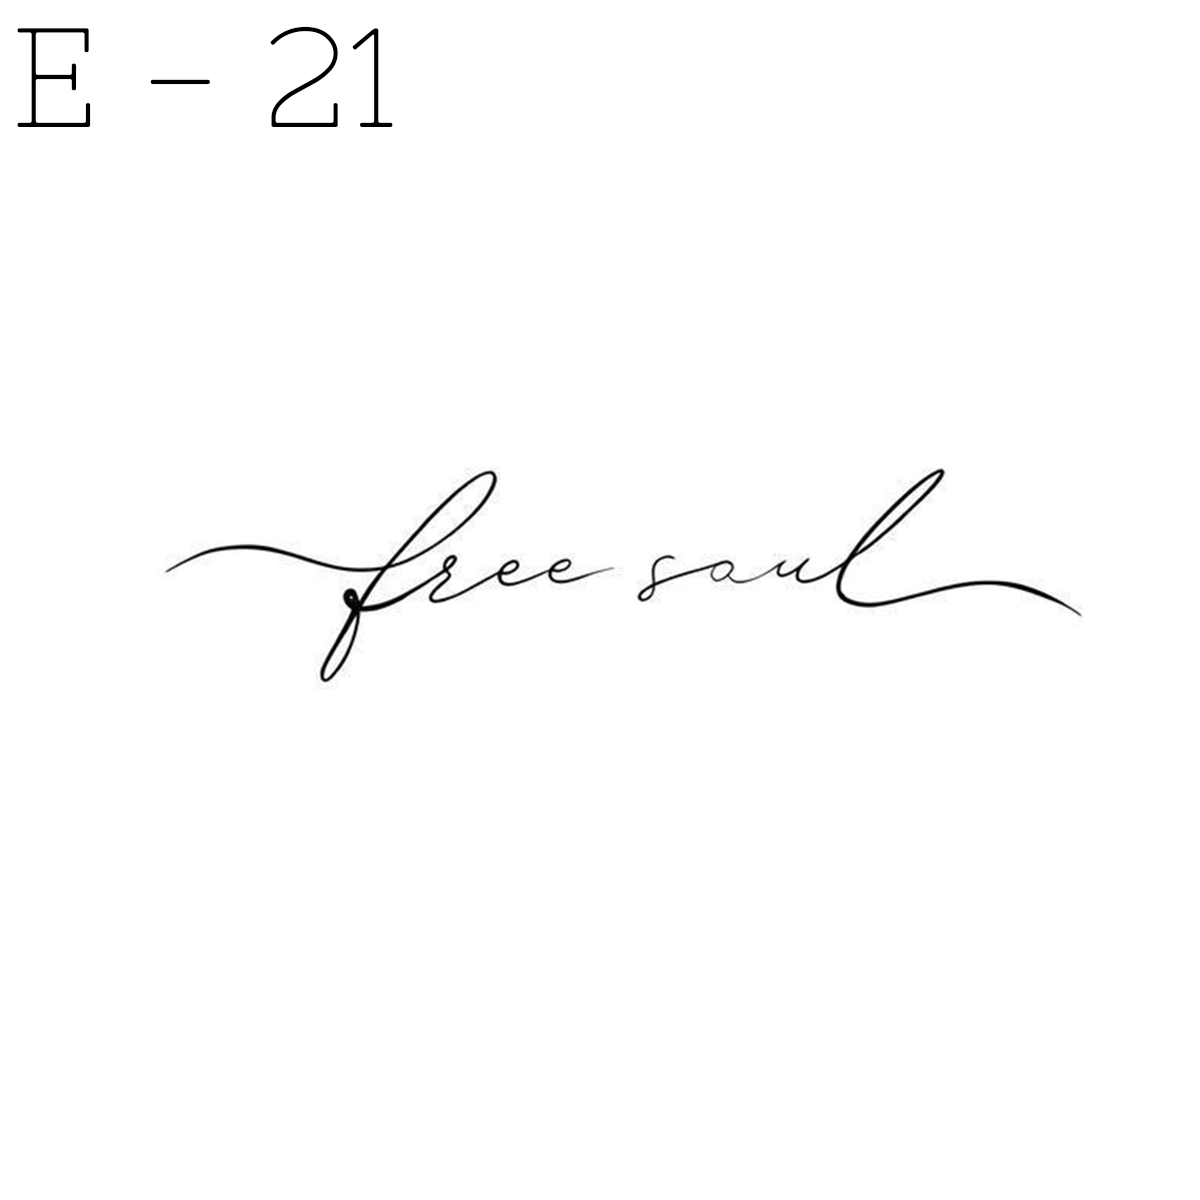 E - 21
free soul